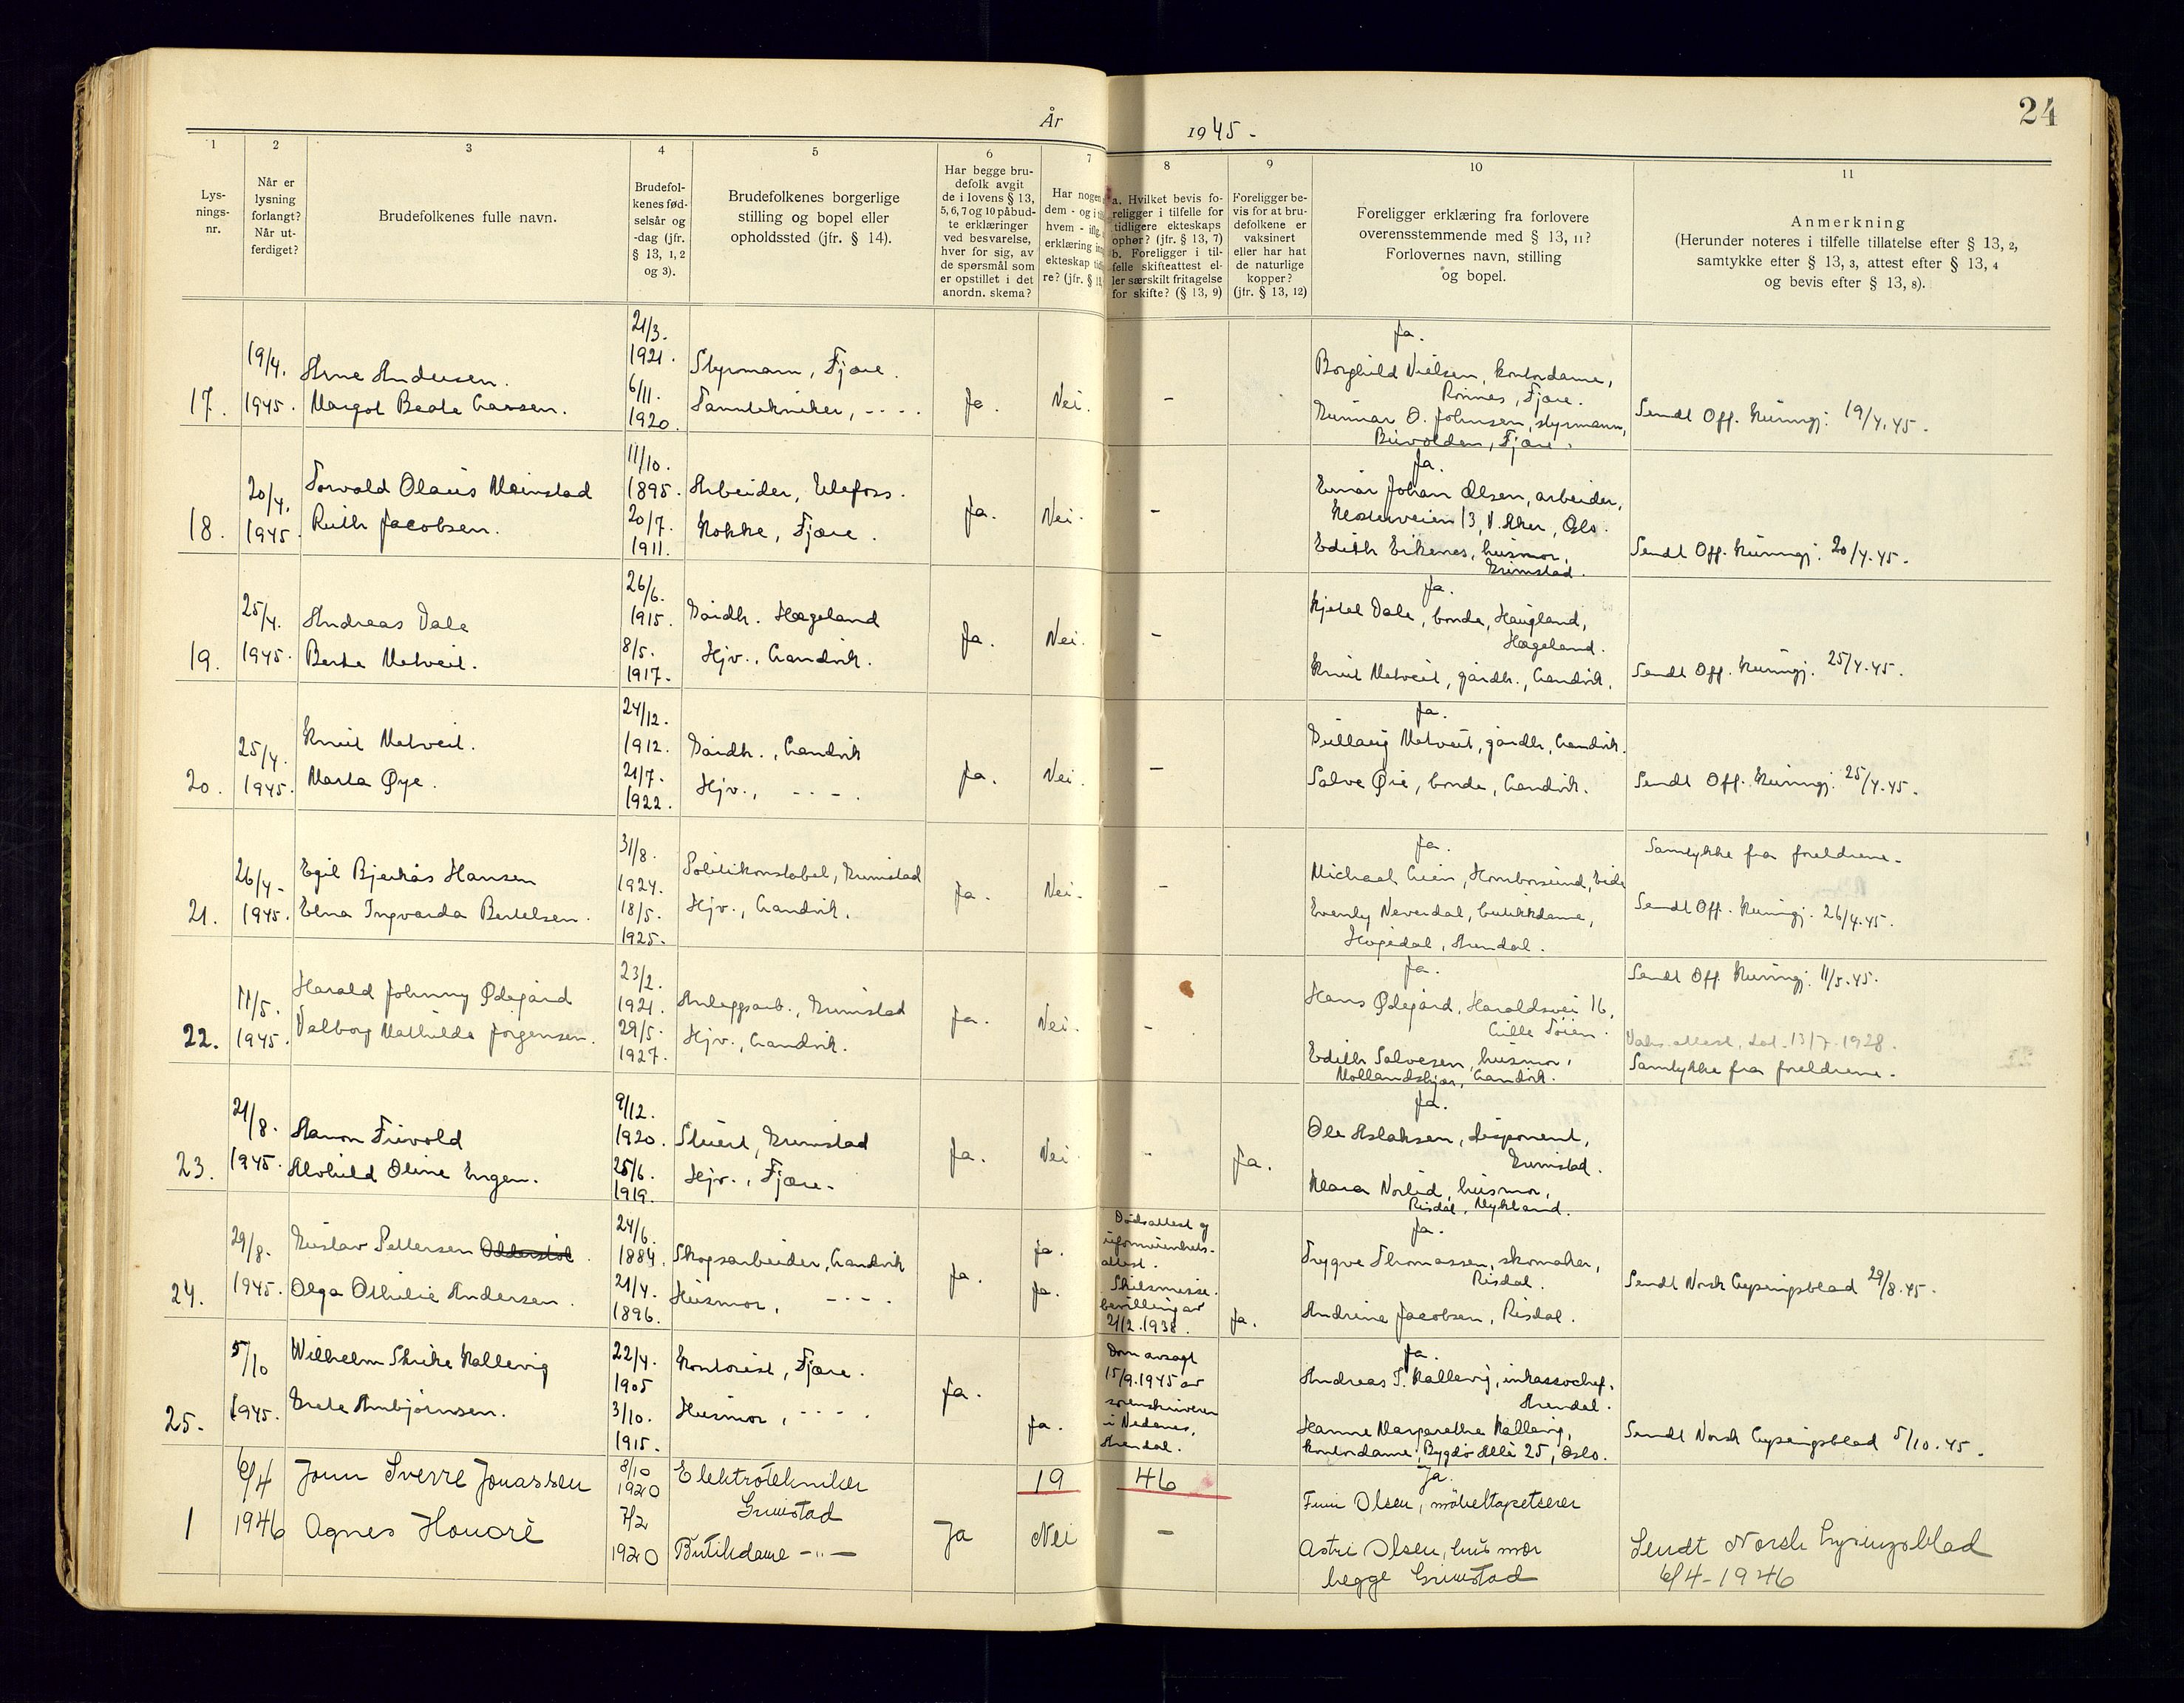 24
År 1945 -
1
2
3
4
5
6
7
8
9
10
11
Lys-
nings-
nr.
Når er
lysning
forlangt?
Når ut-
ferdiget?
Brudefolkenes fulle navn.
Brudefol-
kenes fød-
selsår og
-dag (jfr.
§ 13, 1, 2
og 3).
Brudefolkenes borgerlige
stilling og bopel eller
opholdssted (jfr. § 14).
Har begge bru-
defolk avgit
de i lovens § 13,
5, 6, 7 og 10 påbud-
te erklæringer
ved besvarelse,
hver for sig, av
de spørsmål som
er opstillet i det
anordn. skema?
Har nogen
dem - og i
hvem - iflg.
erklæring
ekteskap
re? (jfr. § 13,
a. Hvilket bevis fo-
religger i tilfelle for
tidligere ekteskaps
ophør? (jfr. § 13, 7)
b. Foreligger i til-
felle skifteattest el-
ler særskilt fritagelse
for skifte? (§ 13, 9)
Foreligger be-
vis for at bru-
defolkene er
vaksinert
eller har hat
de naturlige
kopper?
(jfr. § 13, 12)
Foreligger erklæring fra forlovere
overensstemmende med § 13, 11?
Forlovernes navn, stilling
og bopel.
Anmerkning
(Herunder noteres i tilfelle tillatelse efter § 13, 2,
samtykke efter § 13, 3, attest efter § 13, 4
og bevis efter § 13, 8).
17.
19/4.
1945.
Arne Andersen.
Margot Beate Larsen.
21/3.
1921.
6/11.
1920.
Styrmann, Fjære.
Tanntekniker, - - - .
Ja.
Nei.
-
Ja.
Borghild Nielsen, kontordame,
Rønnes, Fjære.
Gunnar O. Johnsen, styrmann,
Bievolden, Fjære.
Sendt Off. Kunngj. 19/4.45.
18.
20/4.
1945.
Torvald Olaus Meinstad
Ruth Jacobsen.
11/10.
1895.
20/7.
1911.
Arbeider, Ulefoss.
Kokke, Fjære.
Ja.
Nei.
-
Ja.
Einar Johan Olsen, arbeider,
Klosterveien 13, V. Aker, Oslo.
Edith Eikenes, husmor,
Grimstad.
Sendt Off. Kunngj. 20/4.45.
19.
25/4.
1945.
Andreas Dale
Berta Metveit.
26/6.
1915.
8/5.
1917.
Gårdb. Hægeland
Hjv., Landvik.
Ja.
Nei.
-
Ja.
Kjetel Dale, bonde, Haugland,
Hægeland.
Knut Metveit, gårdb., Landvik.
Sendt Off. Kunngj. 25/4.45.
20.
25/4.
1945.
Knut Metveit.
Marta Øye.
24/12.
1912.
21/7.
1922.
Gårdb., Landvik
Hjv., - - - .
Ja.
Nei.
-
Ja.
Metveit, gårdb., Landvik.
Salve Øie, bonde, Landvik.
Sendt Off. Kunngj. 25/4.45.
21.
26/4.
1945.
Egil Bjerkås Hansen
Elna Ingvarda Bertelsen.
31/8.
1924.
18/5.
1925.
Politikonstabel, Grimstad
Hjv., Landvik.
Ja.
Nei.
-
Ja.
Michael Lien, Homborsund, Eide
Evenly Neverdal, butikkdame,
Hogedal, Arendal.
Samtykke fra foreldrene.
Sendt Off. Kunngj. 26/4.45.
22.
11/5.
1945.
Harald Johnny Ødegård
Valborg Mathilde Jørgensen.
23/2.
1921.
29/5.
1927.
Anleggsarb., Grimstad
Hjv., Landvik.
Ja.
Nei.
-
Ja.
Hans Ødegård, Haraldsvei 16,
Lille Tøien.
Edith Salvesen, husmor,
Mollandskjær, Landvik.
Sendt Off. Kunngj. 11/5.45.
Vaks.attest, dat. 13/7.1928.
Samtykke fra foreldrene.
23.
21/8.
1945.
Aanon Frivold
Alvhild Oline Engen.
9/12.
1920.
25/6.
1919.
Stuert, Grimstad
Hjv., Fjære.
Ja.
Nei.
-
Ja.
Ja.
Ole Aslaksen, disponent,
Grimstad.
Klara Norlid, husmor,
Risdal, Mykland.
24.
29/8.
1945.
Gustav Pettersen Odderstøl.
Olga Othilie Andersen.
24/6.
1884.
21/4.
1896.
Skogsarbeider, Landvik
Husmor, - - - .
Ja.
Ja.
Ja.
Dødsattest og
uformuenhets-
attest.
Skilsmisse-
bevilling av
21/2.1938.
Ja.
Ja.
Trygve Thomassen, skomaker,
Risdal.
Andrine Jacobsen, Risdal.
Sendt Norsk Lysingsblad 29/8.45.
25.
5/10
1945.
Wilhelm Skrike Kallevig
Grete Arnbjørnsen.
22/4.
1905
3/10.
1915.
Kontorist, Fjære.
Husmor, - - - .
Ja.
Ja.
Dom avsagt
15/9.1945 av
sorenskriveren
i Nedenes,
Arendal.
Ja.
Andreas T. Kallevig, inkassochef,
Arendal.
Hanne Margarethe Kallevig,
kontordame, Bygdø Allé 25, Oslo.
Sendt Norsk Lysingsblad 5/10.45.
19 46
1
6/4
1946
Jonn Sverre Jonassen
Agnes Honoré
8/10
1920
7/2
1920
Elektrotekniker
Grimstad
Butikdame -"-
Ja
Nei
-
Ja.
Finn Olsen, møbeltapetserer
Astri Olsen, hus mor
begge Grimstad
Sendt Norsk Lysingsblad
6/4-1946